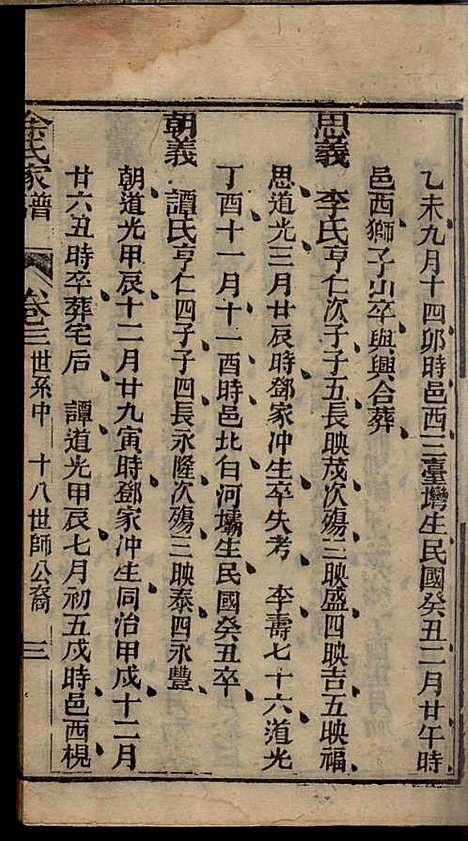 乙未九月十四卯時邑西三臺灣生民國癸丑二月廿午時
邑西獅子山卒與興合葬
思義　李氏亨仁次子子五長映茂次殤三映盛四映吉五映福
思道光三月廿辰時鄧家冲生卒失考　李壽七十六道光
丁酉十一月十一酉時邑北白河壩生民國癸丑卒
朝義　譚氏亨仁四子子四長永隆次殤三映泰四永豐
朝道光甲辰十二月廿九寅時鄧家冲生同治甲戌十二月
廿六丑時卒葬宅后　譚道光甲辰七月初五戌時邑西梘
余氏家譜　卷三世系中　十八世師公裔　三